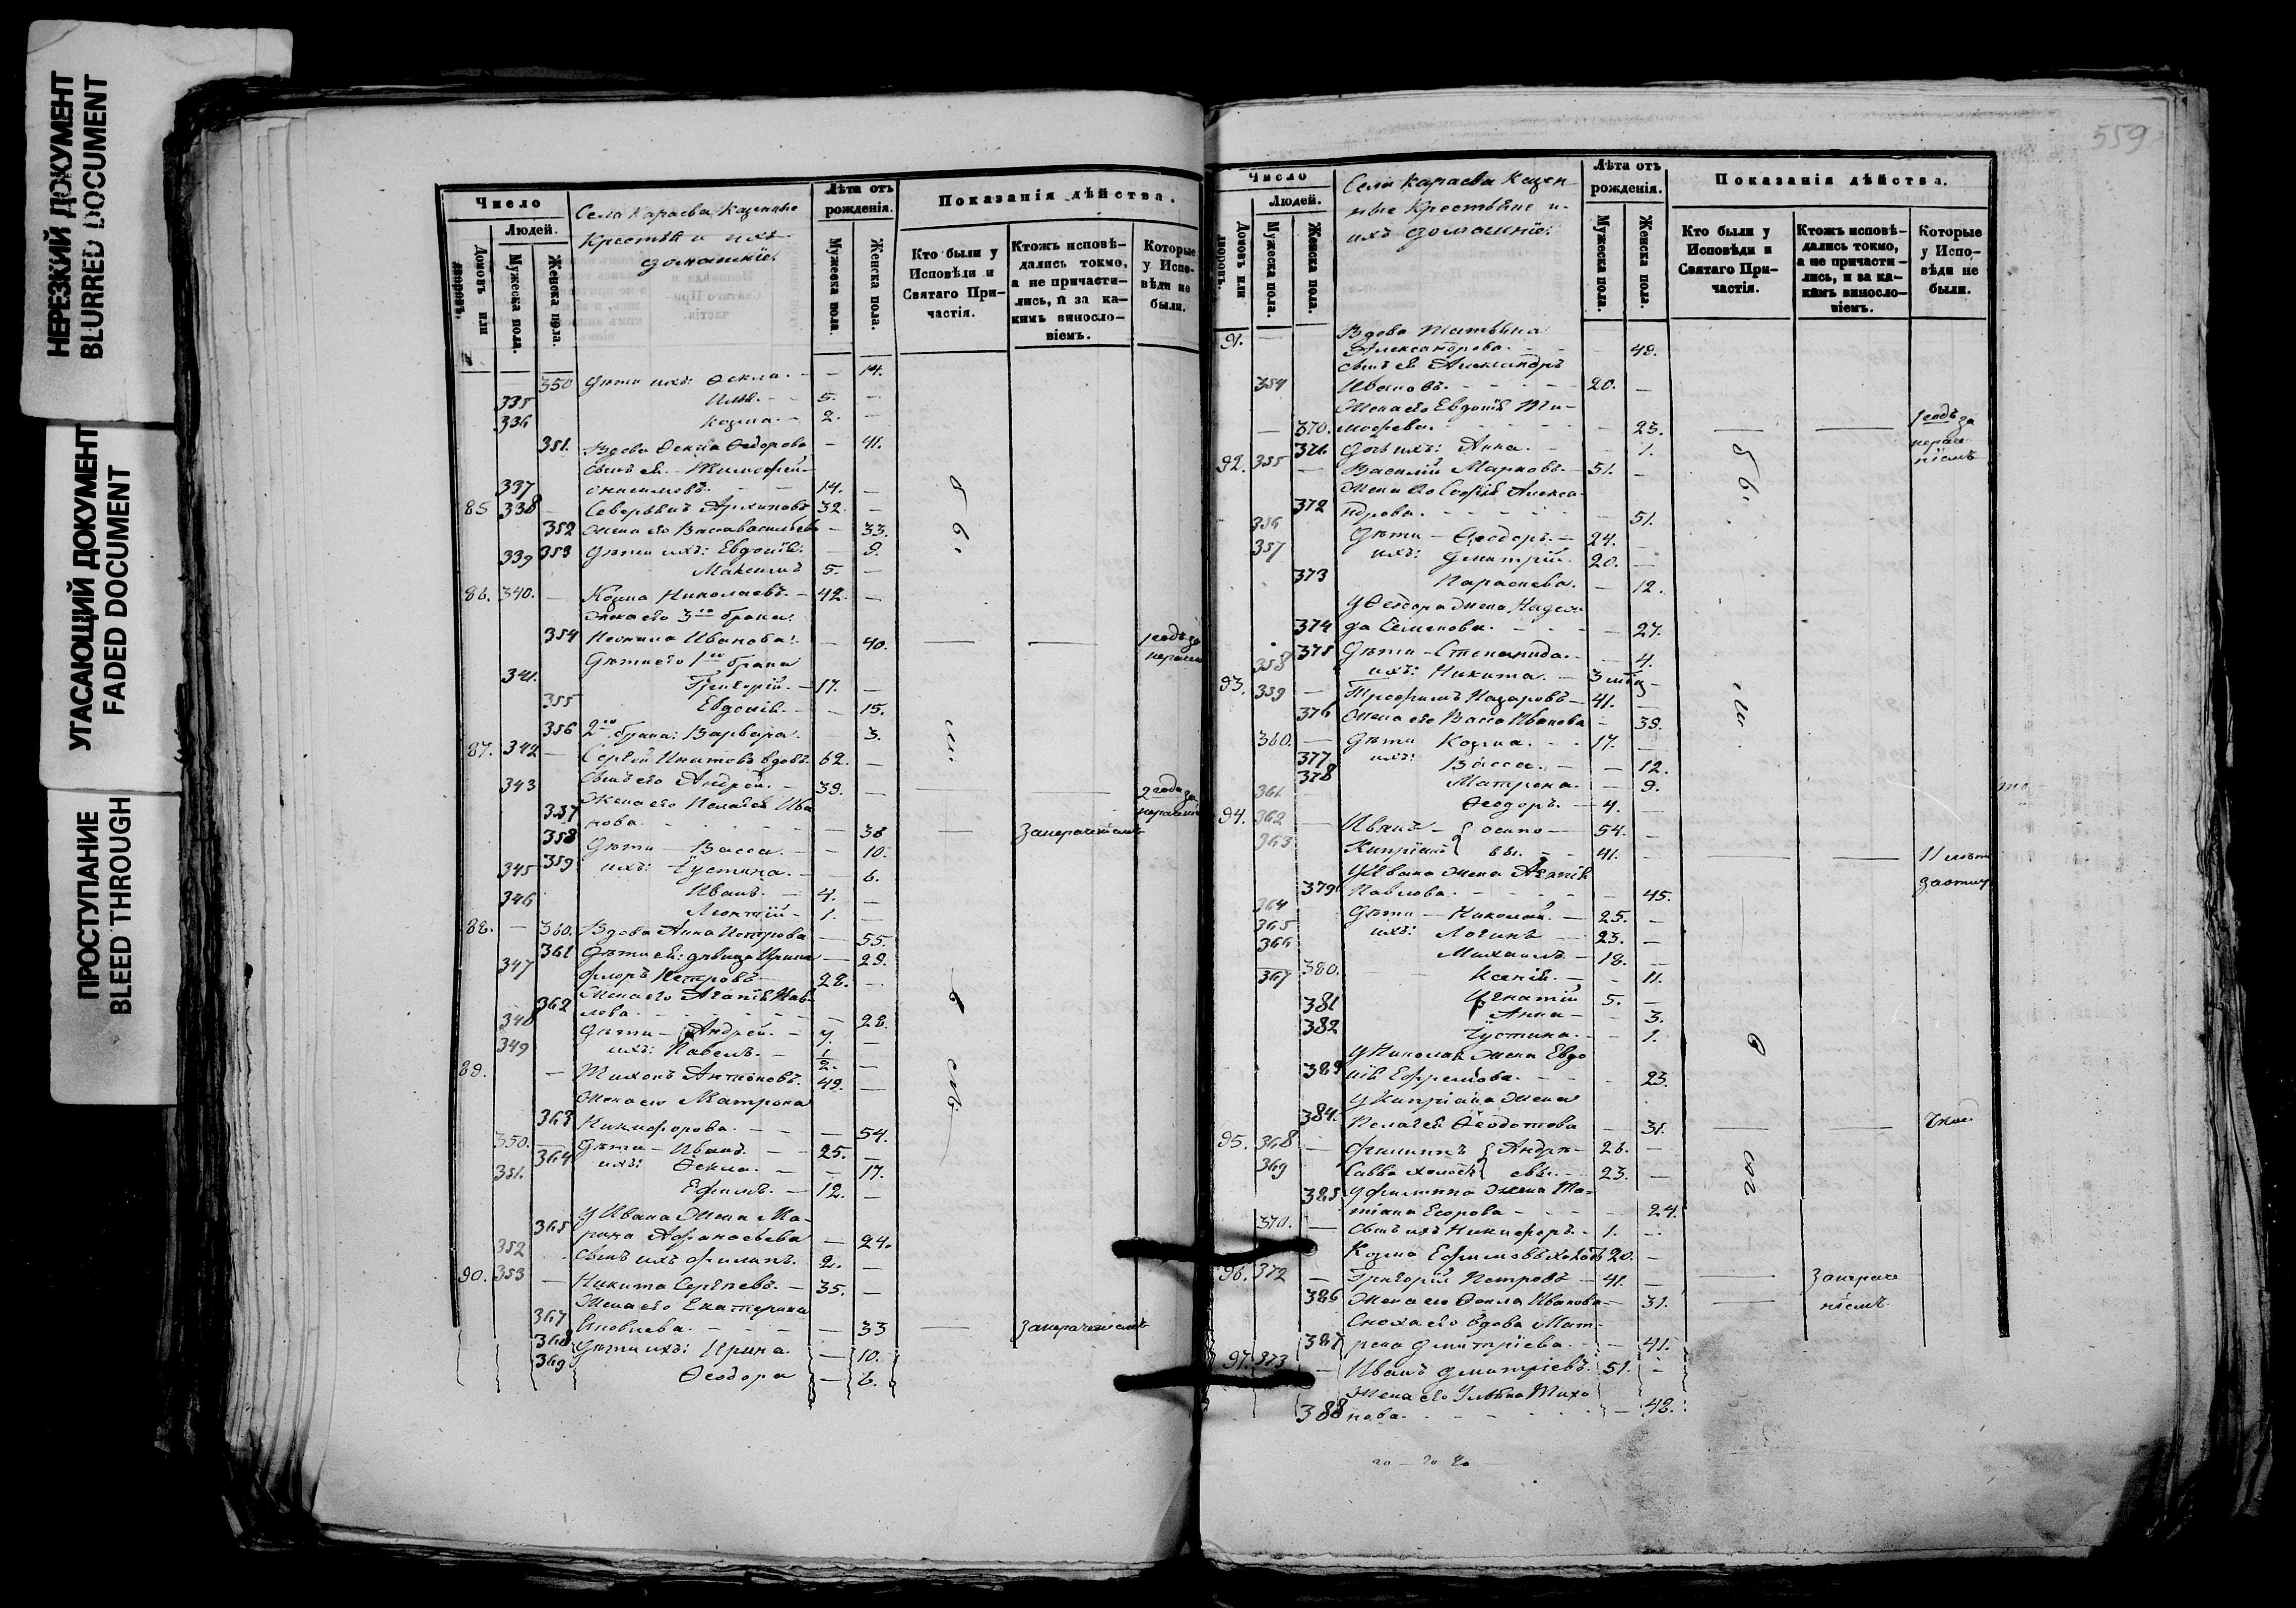 НЕРЕЗКИЙ ДОКУМЕНТ
BLURRED DOCUMENT
УГАСАЮЩИЙ ДОКУМЕНТ
FADED DOCUMENT
ПРОСТУПАНИЕ
BLEED THROUGH
Число
Людей.
Домовъ или дворовъ.
Мужеска пола.
Женска пола.
Села Караева Казенные
Крестьян и ихъ
домашніе.
Лѣта отъ рожденія.
Мужеска пола.
Женска пола.
Показанія дѣйства.
Кто были у Исповѣди и Святаго Причастія.
Ктожъ исповѣдались токмо, а не причастились, и за какимъ винословіемъ.
Которые у Исповѣди не были.
350 Дѣти ихъ: Ѳекла. — 14.
335 Илья. 5. —
336 Козма. — 2. —
351. Вдова Ѳекла Ѳедорова — 41.
сынъ ея. — Тимоѳей
337 Анисимовъ. 14. —
85 338 — Северьянъ Архиповъ 32. —
352 Жена его Васса Васильева — 33.
353 Дѣти ихъ: Евдокія. — 9.
339 Максимъ 5. —
86. 340. — Козма Николаевъ. — 42. —
Жена его 3го брака.
354 Неонила Иванова. — 40. — — 1 годъ за
Дѣти его 1го брака
341. Григорій. — 17. —
355 Евдокія. — — 15.
356 2го брака: Варвара. 3.
87. 342 — Сергѣй Никитовъ вдовъ 62. —
343 Сынъ его Андрей. — 39. — — — 2 года за
Жена его Пелагея Ива
357 нова. — 38 — За нераченіемъ
358 Дѣти — Васса. — — 10.
359 ихъ: Іустина. — — 6.
345 Иванъ. — 4. —
346 Леонтій — 1. —
88. — 360. Вдова Анна Петрова — 55.
361 Дѣти ея: дѣвица Ирина — 29.
347 Флоръ Петровъ — 28. —
Жена его Агапія Пав
362 лова. — 28.
348 Дѣти — Андрей. — 4. —
349 ихъ: Павелъ. — 1/2. —
89. — Тихонъ Антоновъ. 49. —
Жена его Матрона
363 Никифорова. — — 54.
350. Дѣти — Иванъ. — 25. —
364 ихъ: Ѳекла. — — 17.
351. Ефимъ. — 12. —
У Ивана Жена Ма-
365 рина Аѳанасьева — 24.
352 Сынъ ихъ Филипъ. 2. —
90. 353 — Никита Сергѣевъ. — 35. —
Жена его Екатерина
367 Яковлева. — — 33 — За нераченіемъ
368 Дѣти ихъ: Ирина. — 10.
369 Ѳеодора — 6.
559
Число
Людей.
Домовъ или дворовъ.
Мужеска пола.
Женска пола.
Села Караева Казен
ные Крестьяне и
ихъ домашніе.
Лѣта отъ рожденія.
Мужеска пола.
Женска пола.
Показанія дѣйства.
Кто были у Исповѣди и Святаго Причастія.
Ктожъ исповѣдались токмо, а не причастились, и за какимъ винословіемъ.
Которые у Исповѣди не были.
91. — Вдова Татьяна
Александрова. — 49.
сынъ ея Александръ
354 Ивановъ. 20. —
Жена его Евдокія Ти-
— 370. моѳеева. — 23. — — 1 годъ за
371 Дочь ихъ: Анна. — 1.
92. 355 — Василій Марковъ. — 51. —
Жена его Софія Алекса
372 ндрова. — 51.
356 Дѣти — Ѳеодоръ. — 24. —
357 ихъ: Дмитрій. 20. —
373 Параскева. — — 12.
У Ѳеодора Жена Надеж
374 да Семенова. — 27.
375 Дѣти — Степанида. — — 4.
358 ихъ: Никита. — 3 мѣц —
93. 359 — Трофимъ Назаровъ — 41. —
376 Жена его Васса Иванова — 39.
360. — Дѣти Козма. — 17. —
377 ихъ: Васса. — — 12.
378 Матрона. — 9.
361 Ѳеодоръ. — 4. —
94. 362 — Иванъ — Осипо — 54. —
363 Кипріанъ вы. — 41. — — — 11 лѣтъ
У Ивана Жена Агапія
379 Павлова. — — 45.
364 Дѣти — Николай. — 25. —
365 ихъ: Логинъ — 23. —
366 Михаилъ — 18. —
380. Ксенія. — — 11.
367 Игнатій 5. —
381 Анна — — 3.
382 Іустина. — — 1.
У Николая Жена Евдо
383 кія Ефремова. — 23.
У Кипріана Жена
384. Пелагея Ѳеодотова — 31. — —
95. 368 — Филиппъ Андре — 26. —
369 Савва холостъ евы. — 23. —
385 У Филиппа Жена Та-
тіана Егорова — 24.
370. — Сынъ ихъ Никифоръ. — 1. —
Козма Ефимовъ холостъ 20. —
96. 372 — Григорій Петровъ — 41. — — За нераче
386 Жена его Ѳекла Иванова — 31. — ніемъ
Сноха его вдова Мат-
387 рена Дмитріева. — — 41.
97. 373 — Иванъ Дмитріевъ. 51. —
Жена его Ульяна Тихо
388 нова. — 48.